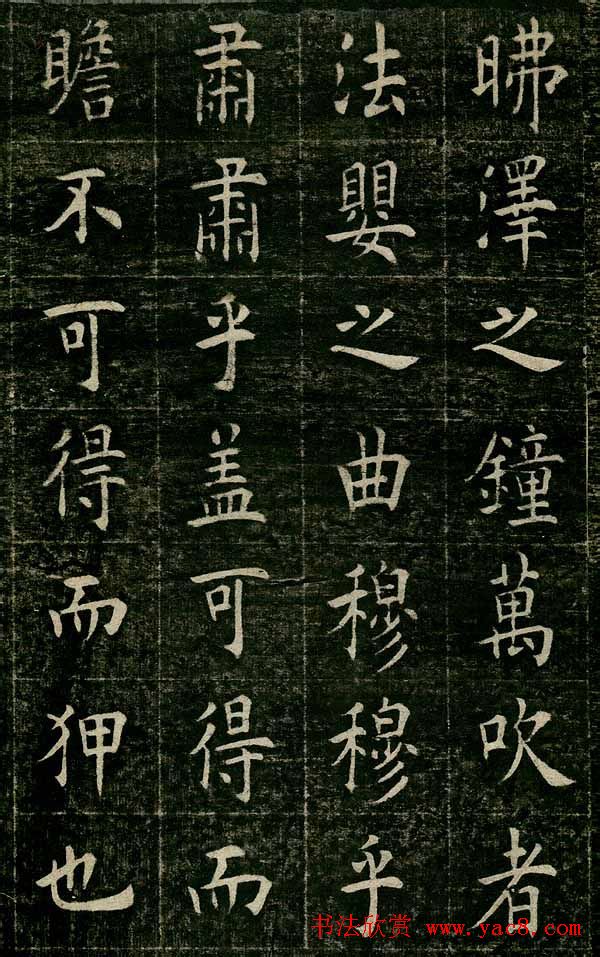 昲澤之鐘萬吹者
法嬰之曲穆穆乎
肅肅乎盖可得而
瞻不可得而狎也
书法欣赏 www.yac8.com